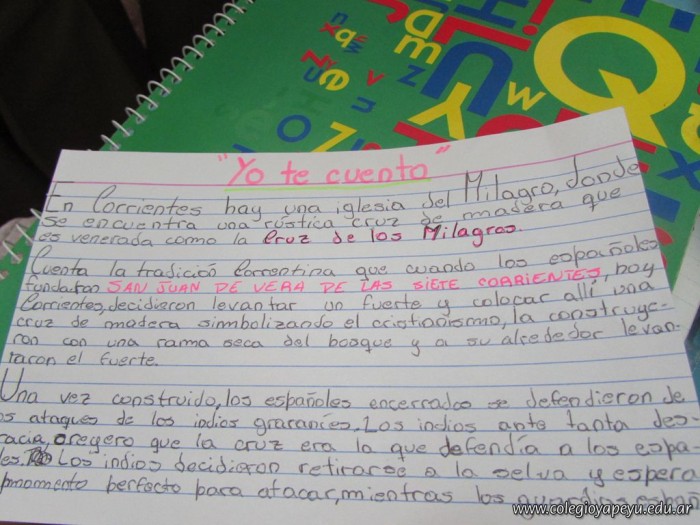 "Yo te cuento"
En Corrientes hay una iglesia del Milagro, donde
se encuentra una rústica cruz de madera que
es venerada como la Cruz de los Milagros.
Cuenta la tradición Correntina que cuando los españoles
fundaron SAN JUAN DE VERA DE LAS SIETE CORRIENTES, hoy
Corrientes, decidieron levantar un fuerte y colocar allí una
cruz de madera simbolizando el cristianismo, la construye-
ron con una rama seca del bosque y a su alrededor levan-
taron el fuerte.
Una vez construido, los españoles encerrados se defendieron de
os ataques de los indios guaraníes. Los indios ante tanta des
racia, que la cruz era la que defendía a los espa-
les. Los indios decidieron retirarse a la selva y espera
momento perfecto para atacar, mientras los guardias espan
www.colegioyapeyu.edu.ar